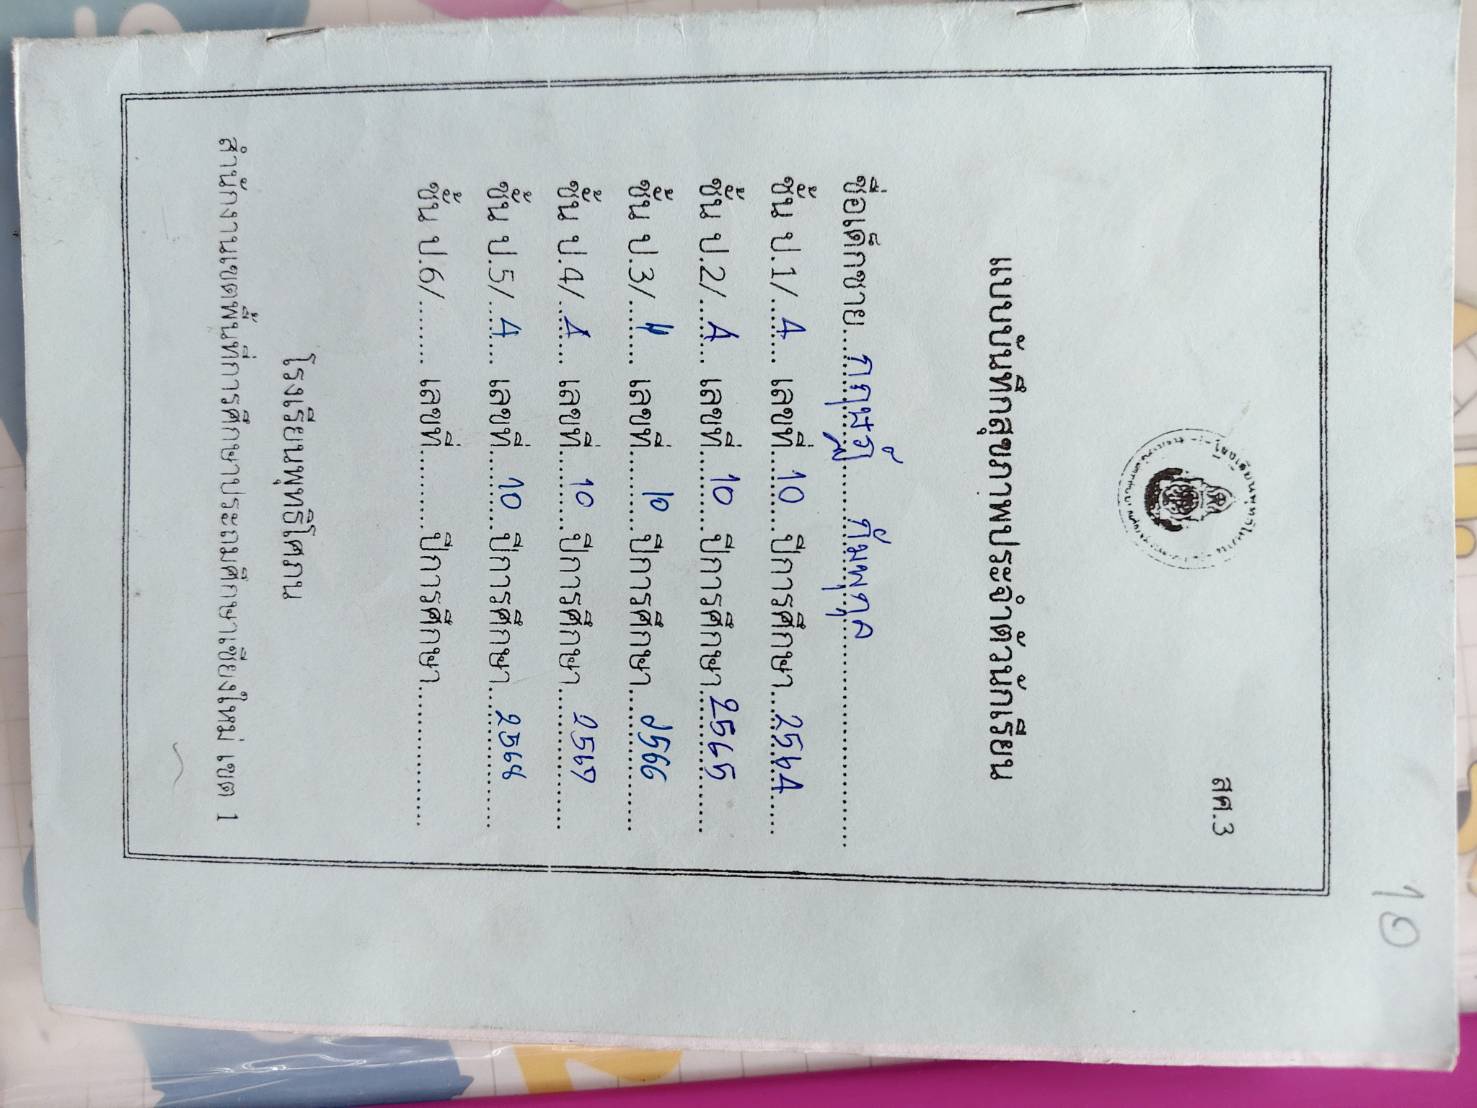 10
สศ.3
แบบบันทึกสุขภาพประจำตัวนักเรียน
ชื่อเด็กชาย.................................
ชั้น ป.1/...4... เลขที่...10...ปีการศึกษา...2564...
ชั้น ป.2/...4... เลขที่...10...ปีการศึกษา...2565...
ชั้น ป.3/...4... เลขที่...10...ปีการศึกษา...2566...
ชั้น ป.4/...4... เลขที่...10...ปีการศึกษา...2567...
ชั้น ป.5/...4... เลขที่...10...ปีการศึกษา...2568...
ชั้น ป.6/......... เลขที่..........ปีการศึกษา.................
โรงเรียนพุทธิโศภน
สำนักงานเขตพื้นที่การศึกษาประถมศึกษาเชียงใหม่ เขต 1